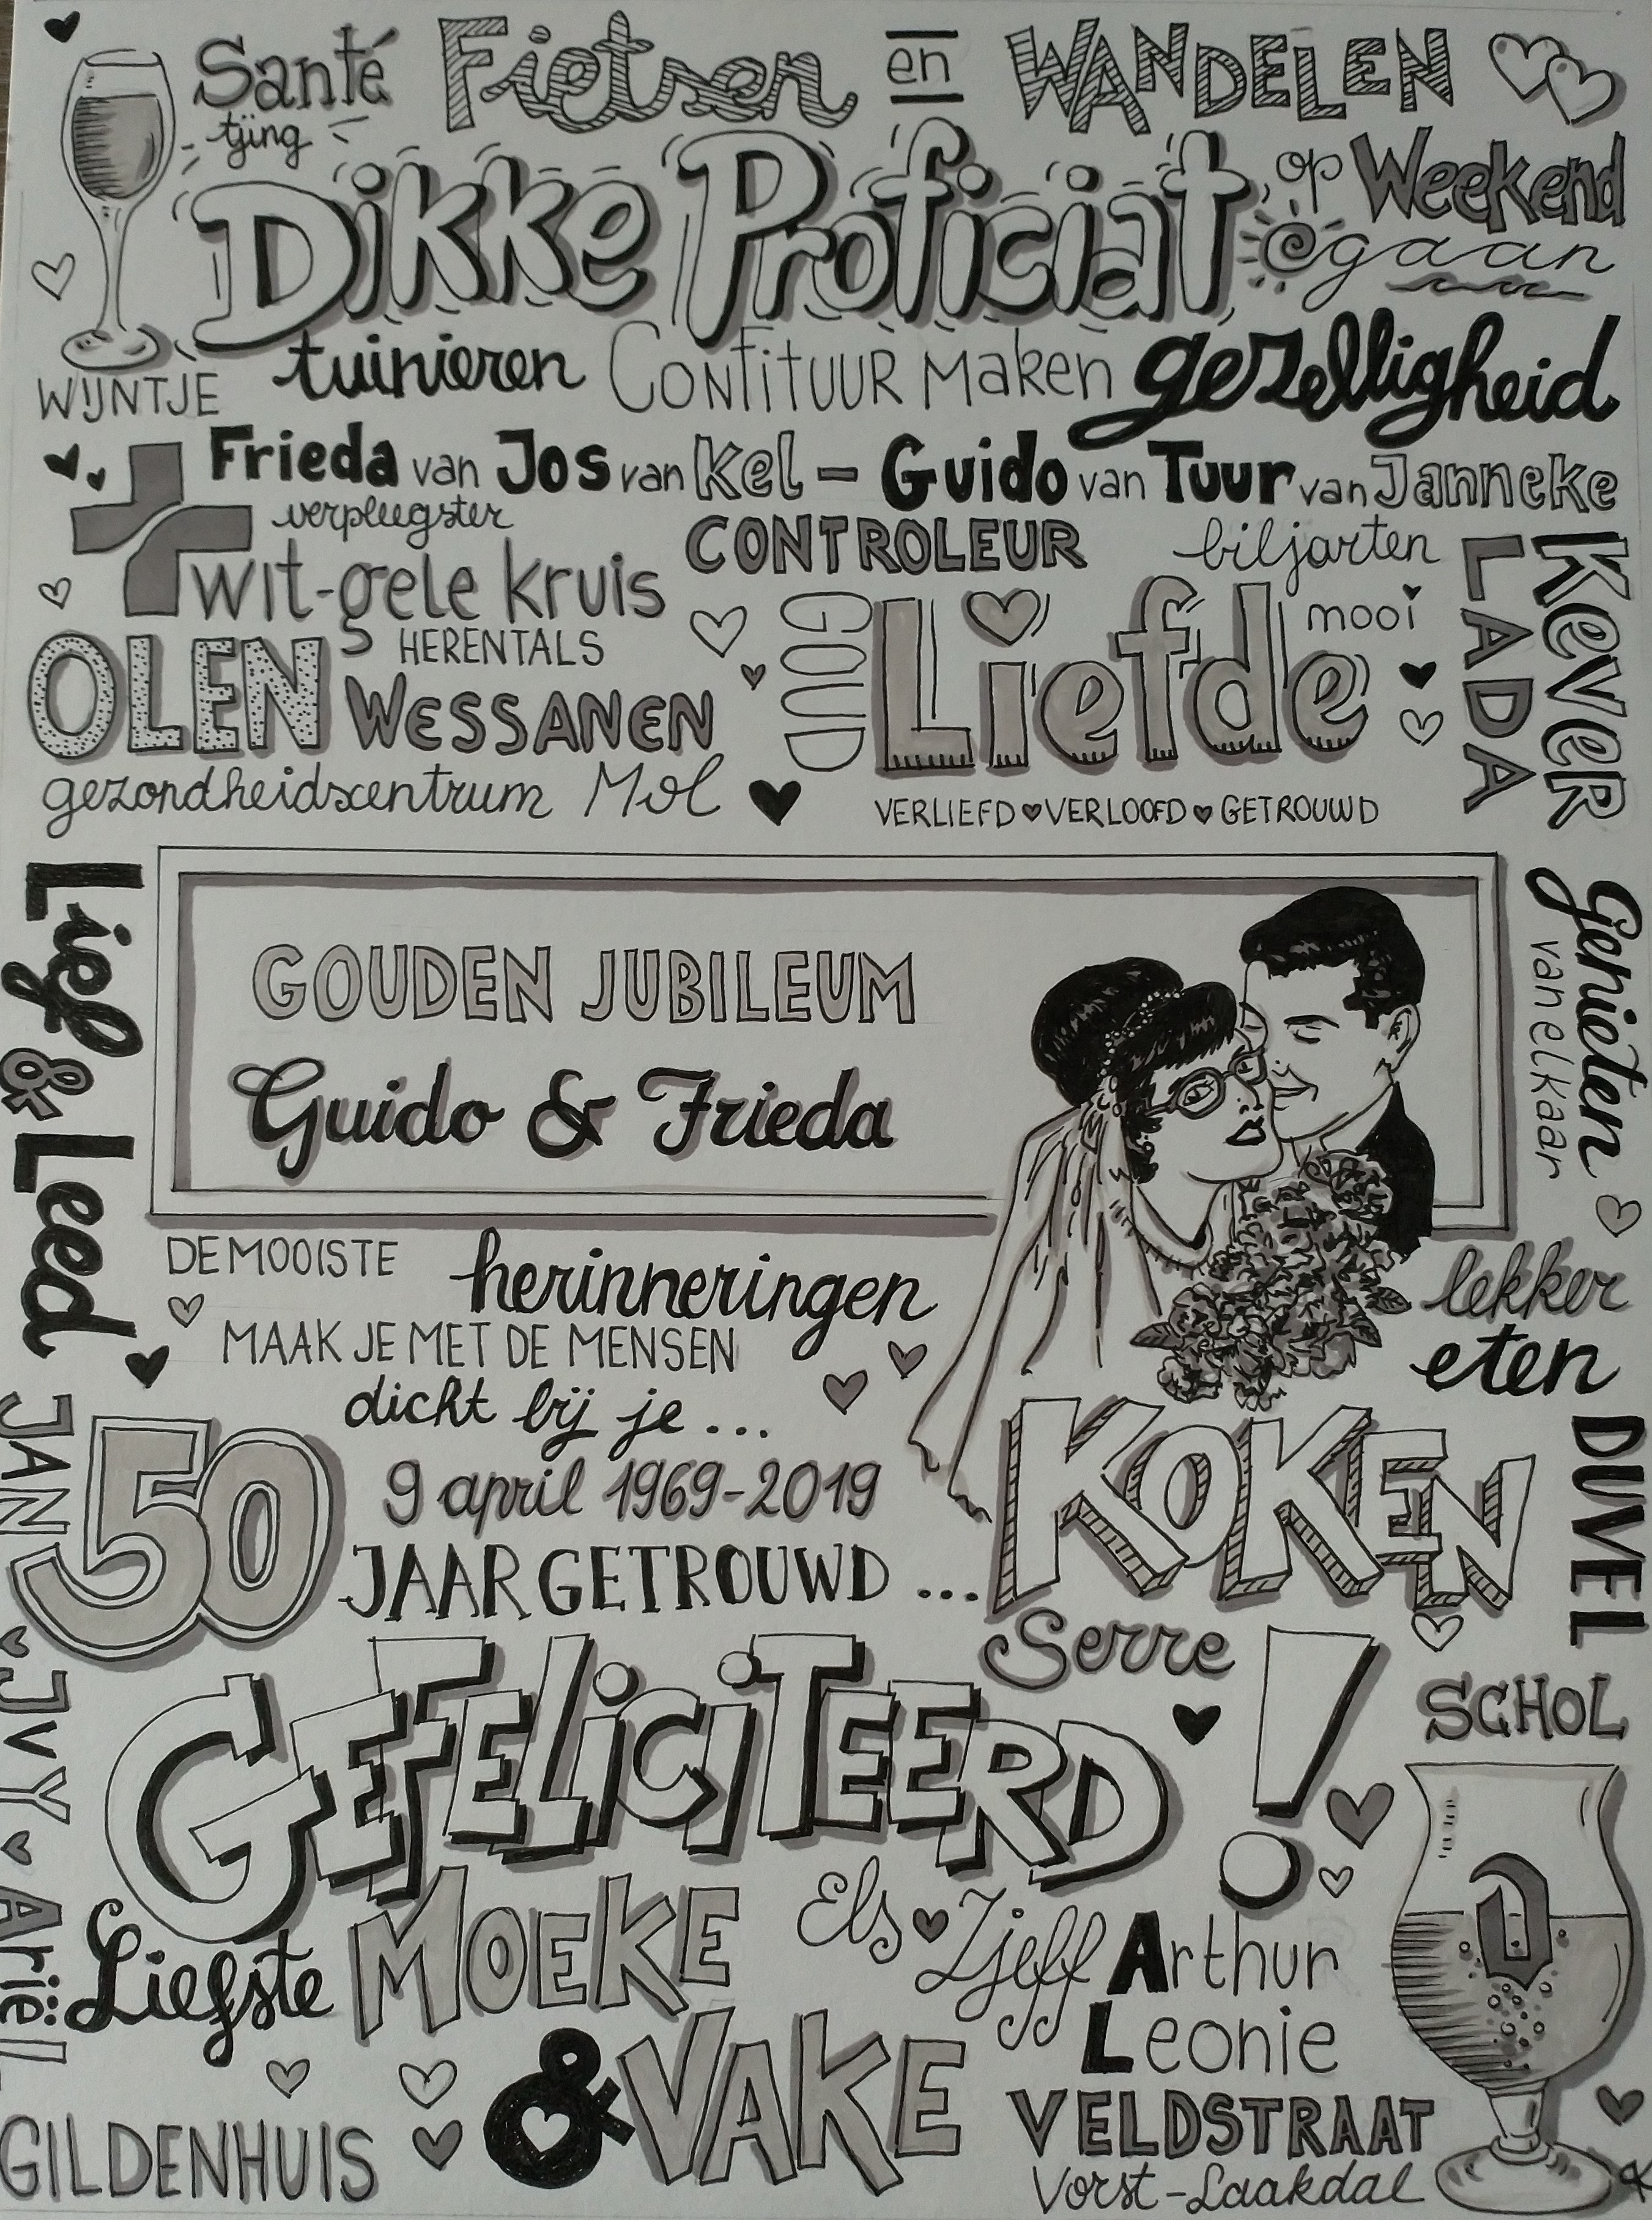 Santé Fietsen en WANDELEN
tjing
Dikke Proficiat
op Weekend
gaan
WIJNTJE tuinieren Confituur Maken gezelligheid
Frieda van Jos van Kel - Guido van Tuur van Janneke
verpleegster
wit-gele kruis
CONTROLEUR biljarten
OLEN HERENTALS
WESSANEN
gezondheidscentrum Mol
GOUD
Liefde
mooi
VERLIEFD ♥ VERLOOFD ♥ GETROUWD
LADA
KEVER
Lief & Leed
GOUDEN JUBILEUM
Guido & Frieda
Genieten
van elkaar
DE MOOISTE herinneringen
MAAK JE MET DE MENSEN
dicht bij je ...
lekker
eten
50
9 april 1969-2019
JAAR GETROUWD ...
KOKEN
DUVEL
Serre
GEFELICITEERD !
SCHOL
JAN ♥ JVY ♥ Ariël
Liefste MOEKE
& VAKE
Els ♥ Zjeff
Arthur
Leonie
D
GILDENHUIS
VELDSTRAAT
Vorst-Laakdal